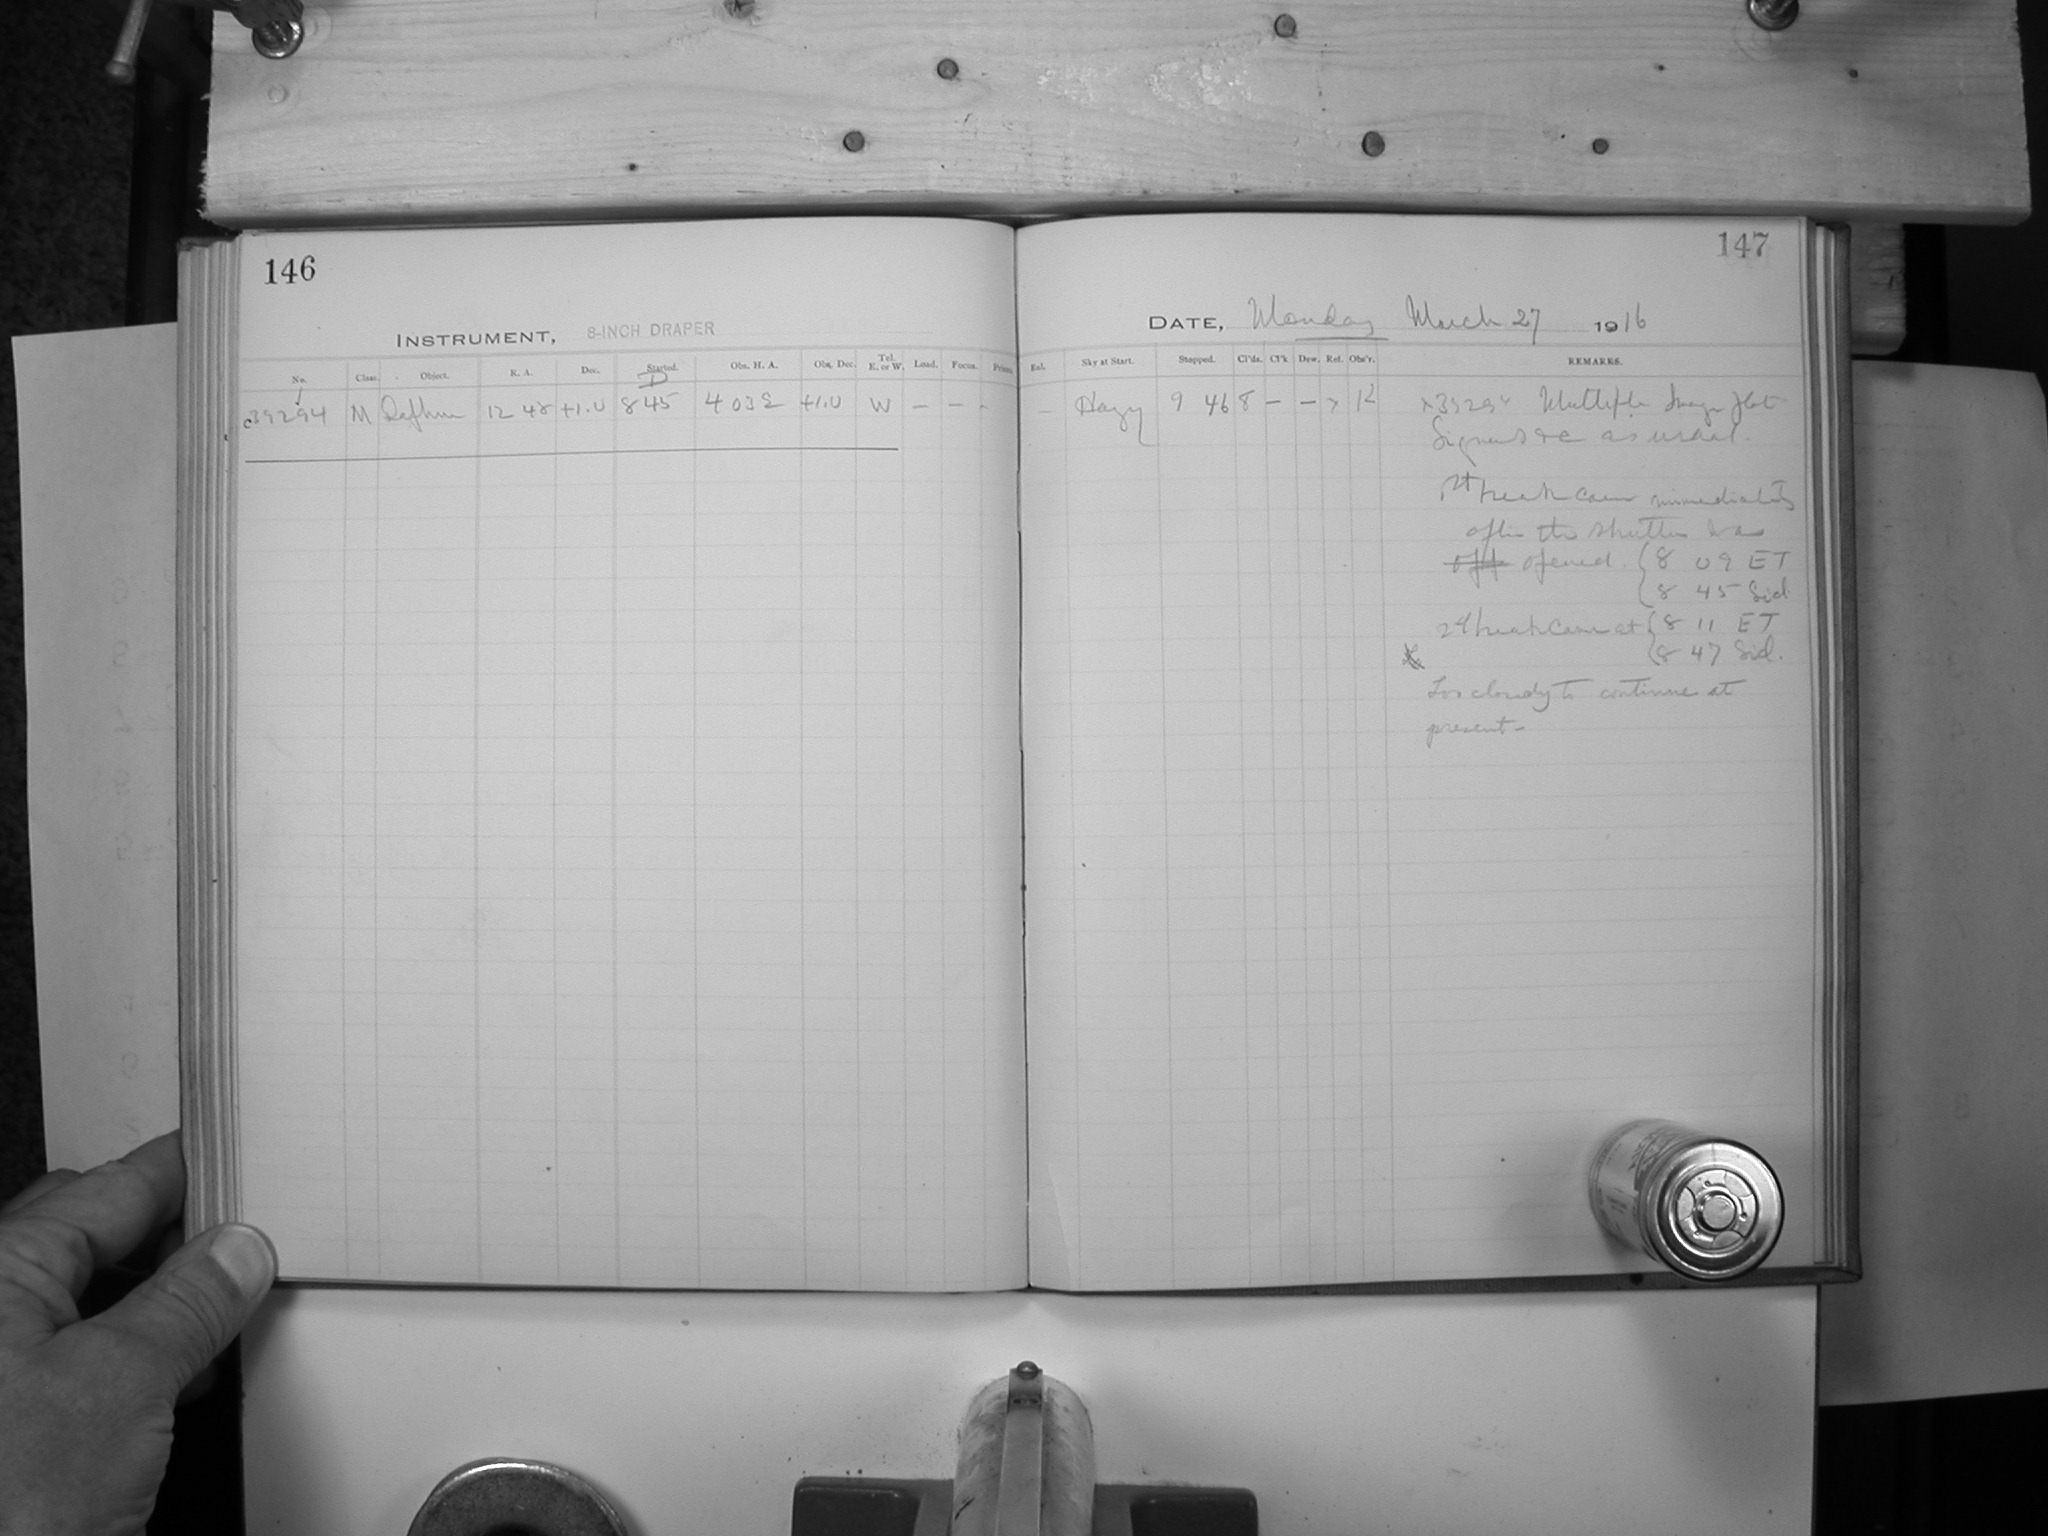 146
INSTRUMENT, 8-INCH DRAPER
No. Class. Object. R. A. Dec. Started. Obs. H. A. Obs. Dec. Tel. E. or W. Load. Focus. Prism
D
39294 M 12 48 +1.0 8 45 4 03 +1.0 W – – -
147
DATE, Monday March 27 1916
Eal. Sky at Start. Stopped. Cl'ds. Cl'k Dew. Ref. Obs'r. REMARKS.
– Hazy 9 46 8 – – > K 39294 Multiple Image plate
Signed &c as usual.
1st break came immediately
after the shutter was
off opened. { 8 09 ET
{ 8 45 Sid
2d break came at { 8 11 ET
{ 8 47 Sid.
Too cloudy to continue at
present –